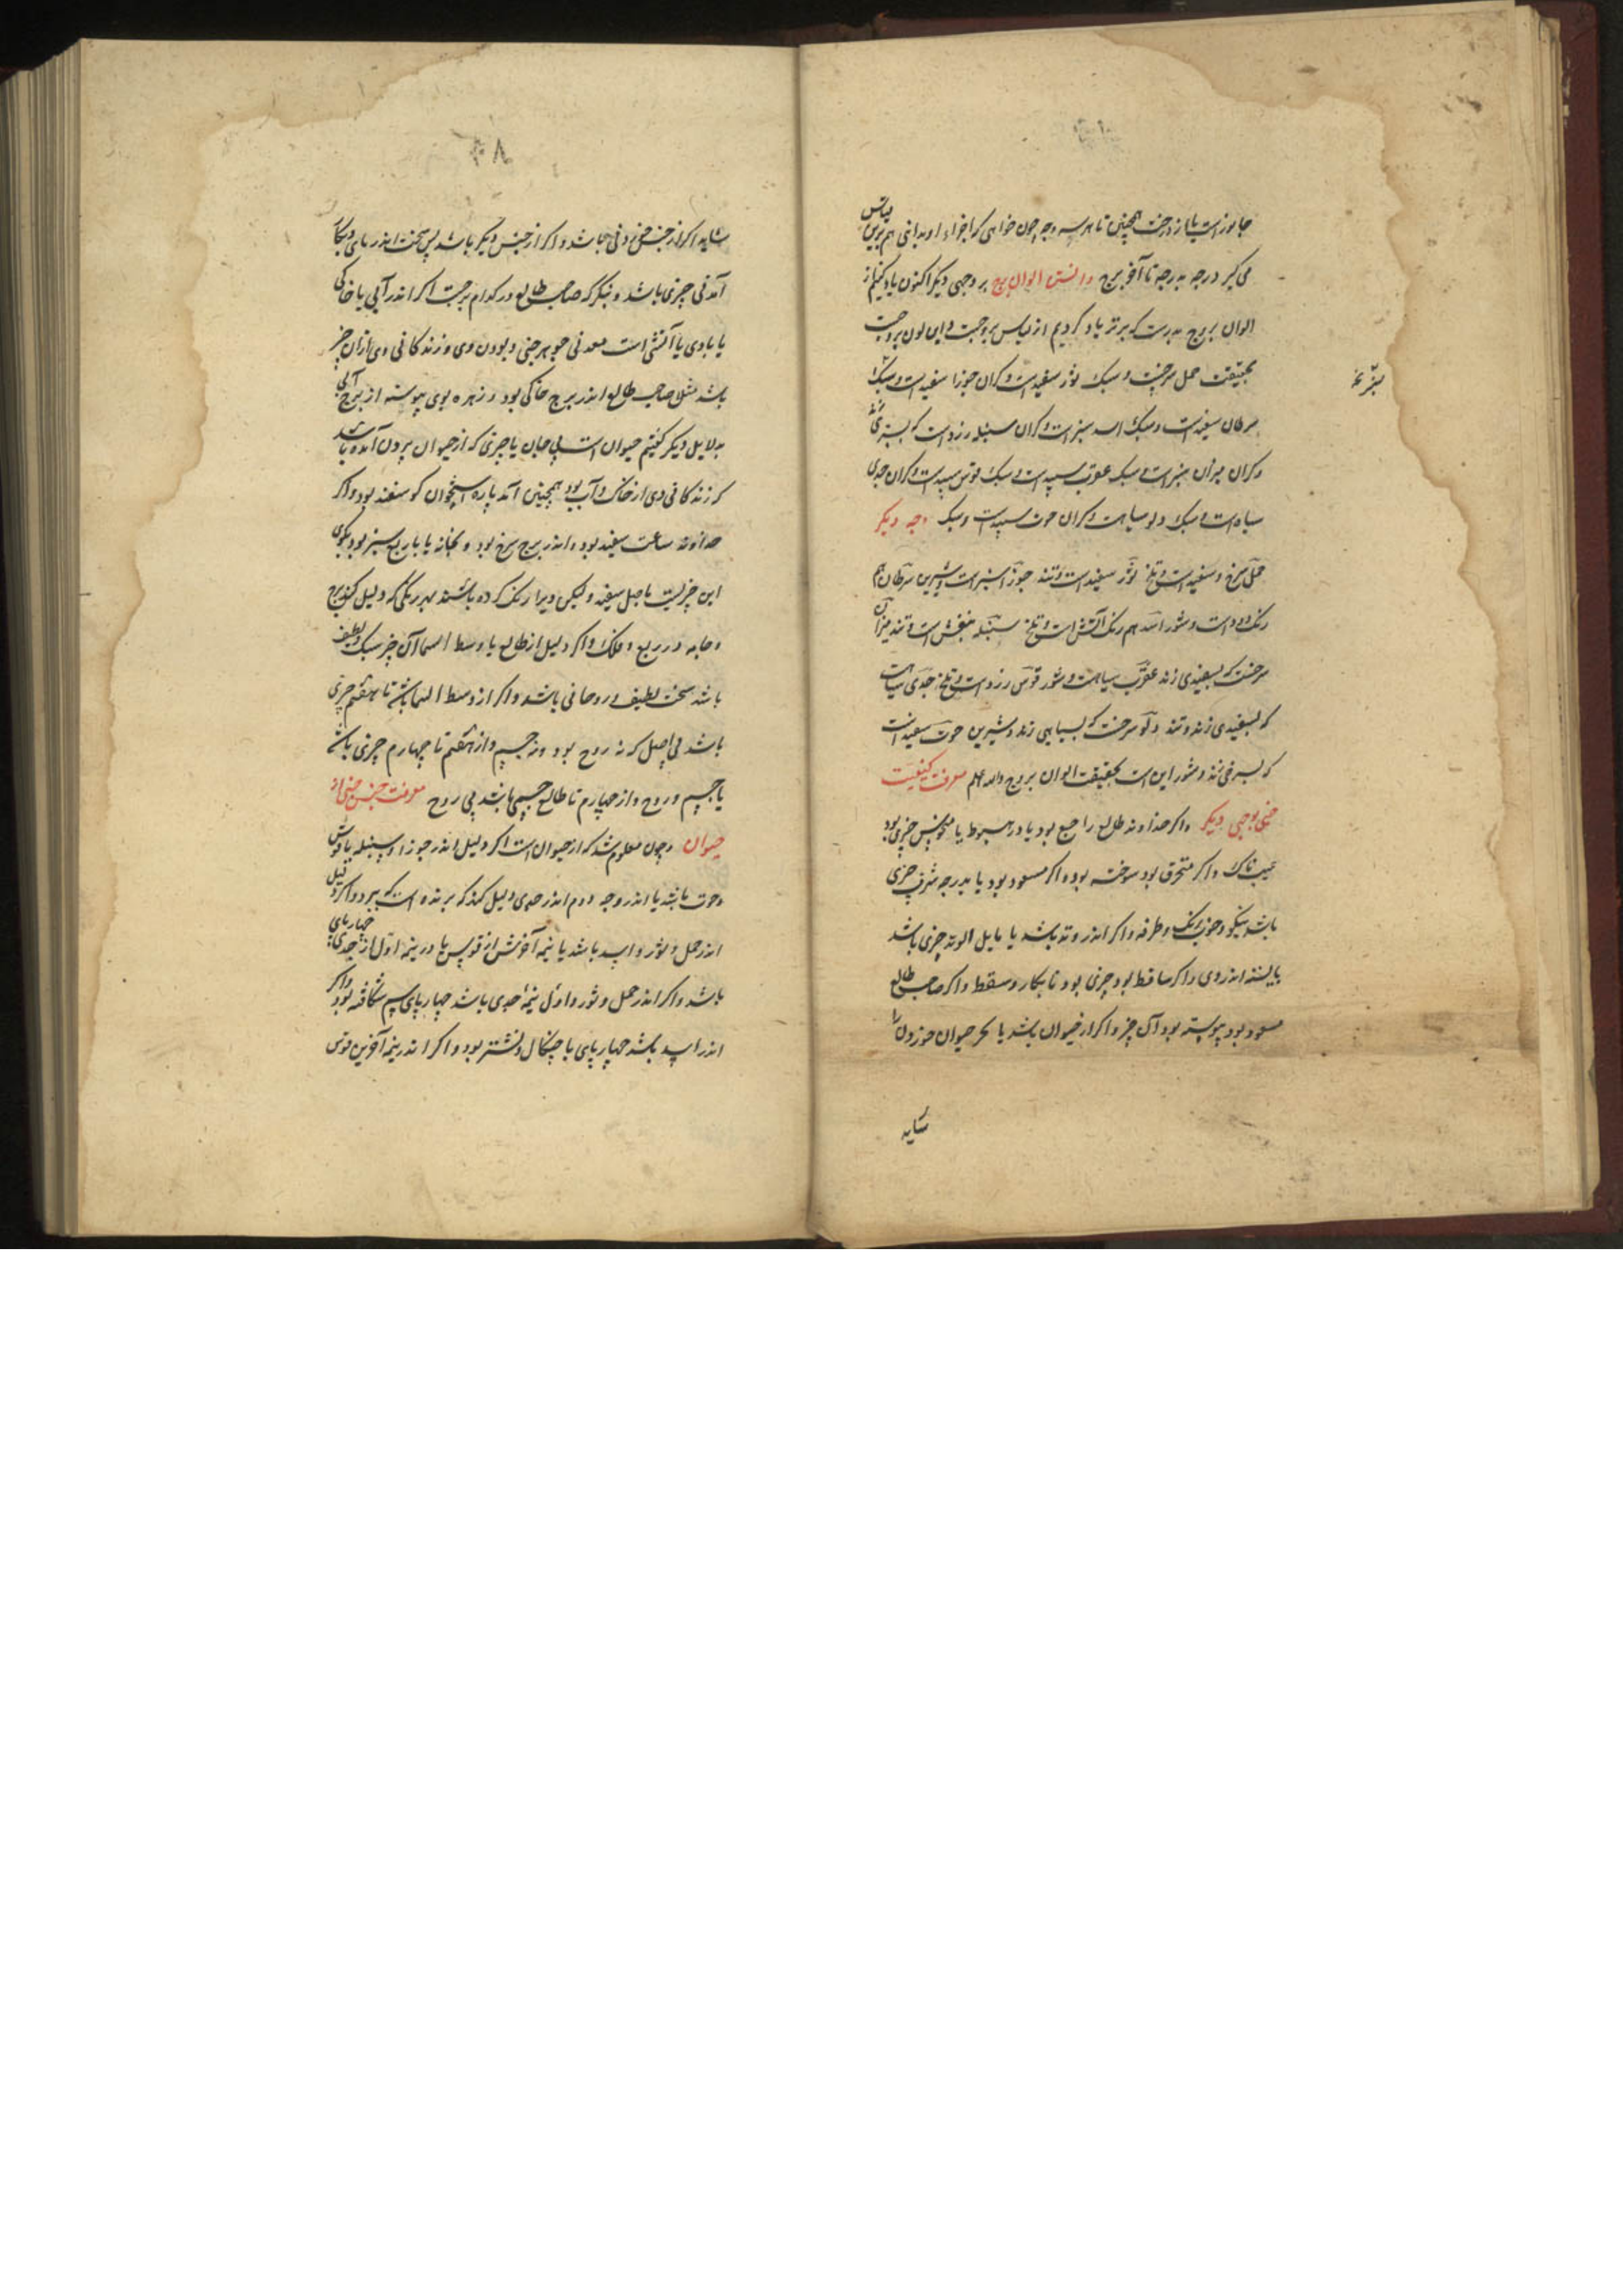 جانورست یا از درخت همچنین تا هر سه وجه چون خواهی که اجزاء او بدانی هم برین قیاس
می گیر درجه بدرجه تا آخر برج دانستن الوان بروج بر وجهی دیگر اکنون یاد کنیم از
الوان بروج بدرست که برتر یاد کردیم از قیاس بروجست و این لون بروجست
بحقیقت حمل سرخست و سبک ثور سفیدست و گران جوزا سفیدست و سبک
سرطان سفیدست و سبک اسد سبزست و گران سنبله زردست که بسبزی زند
و گران میزان سبزست و سبک عقرب سپیدست و سبک قوس سپیدست و گران جدی
سیاه است و سبک دلو سیاهست و گران حوت سپیدست و سبک وجه دیگر
حمل سرخ و سفیدست و تلخ ثور سفیدست و تند جوزا سبزست و شیرین سرطان هم
رنگ دودست و شور اسد هم رنگ آتش است و تلخ سنبله بنفش است و تند میزان
سرخست که بسفیدی زند عقرب سیاهست و شور قوس زردست و تلخ جدی سیاهست
که بسفیدی زند و تند دلو سرخست که بسیاهی زند و شیرین حوت سفیدست
که بسرخی زند و شور این است بحقیقت الوان بروج والله اعلم معرفت کیفیت
خبی بوجهی دیگر و اگر خداوند طالع راجع بود یا در هبوط یا منحوس چیزی بود
عیب ناک و اگر محترق بود سوخته بود و اگر مسعود بود یا بدرجه شرف چیزی
باشد نیکو و خوب رنگ و طرفه و اگر اندر وتد باشد یا مایل الوتد چیزی باشد
بایسته اندر وی و اگر ساقط بود چیزی بود نابکار و سقط و اگر صاحب طالع
مسعود بود پیوسته بود آن چیز و اگر از حیوان باشد یا مگر حیوان خوردن را
شاید
شاید اگر از جنس خوردنی باشد و اگر از جنس دیگر باشد پس سخت اندر بای و بکار
آمدنی چیزی باشد و بنگر که صاحب طالع در کدام برجست اگر اندر آبی یا خاکی
یا بادی یا آتشی است معدنی جوهر خبی و بودن وی و زندگانی وی از آن چیز
باشد مثلا صاحب طالع اندر برج خاکی بود و زهره بوی پیوسته از برج آبی
بدلایل دیگر گفتیم حیوان است بی جان یا چیزی که از حیوان برون آمده باشد
که زندگانی وی از خاک و آب بود همچنین آمد پاره استخوان گوسفند بود و اگر
خداوند ساعت سفید بود و اندر برج سرخ بود و بخانه یا بار بع سبز بود بگوی
این چیزیست باصل سفید ولیکن ویرا رنگ کرده باشند بهر رنگی که دلیل کند برج
و خانه و ربع و فلک و اگر دلیل از طالع یا وسط السما آن چیز سبک و لطیف
باشد سخت لطیف و روحانی باشد و اگر از وسط السما باشد تا بهفتم چیزی
باشد بی اصل که نه روح بود و نه جسم و از هفتم تا چهارم چیزی باشد
با جسم و روح و از چهارم تا طالع جسمی باشد بی روح معرفت جنس خبی از
حیوان و چون معلوم شد که از حیوان است اگر دلیل اندر جوزا و سنبله یا قوس
و حوت باشد یا اندر وجه دوم اندر جدی دلیل کند که پرنده است که بپرد و اگر دلیل
اندر حمل و ثور و اسد باشد یا نیمه آخرش از قوس یا در نیمه اول از جدی چهارپای
باشد و اگر اندر حمل و ثور و اول نیمه جدی باشد چهارپای سم شکافته بود و اگر
اندر اسد باشد چهارپای با چنگال و نشتر بود و اگر اندر نیمه آخرین قوس